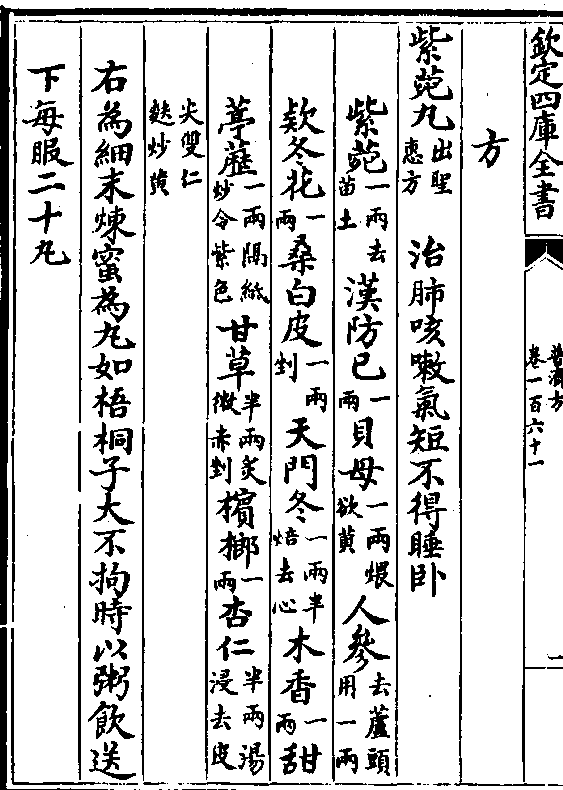 欽定四庫全書
普濟方
卷一百六十一
一
方
紫菀丸出聖惠方 治肺咳嗽氣短不得睡卧
紫菀一兩去苗土 漢防已一兩 貝母一兩煨欲黄 人參去蘆頭用一兩
欵冬花一兩 桑白皮一兩剉 天門冬一兩半焙去心 木香一兩 甜
葶藶一兩隔紙炒令紫色 甘草半兩炙微赤剉 檳榔一兩 杏仁半兩湯浸去皮
尖雙仁麩炒黄
右為細末煉蜜為丸如梧桐子大不拘時以粥飲送
下每服二十丸